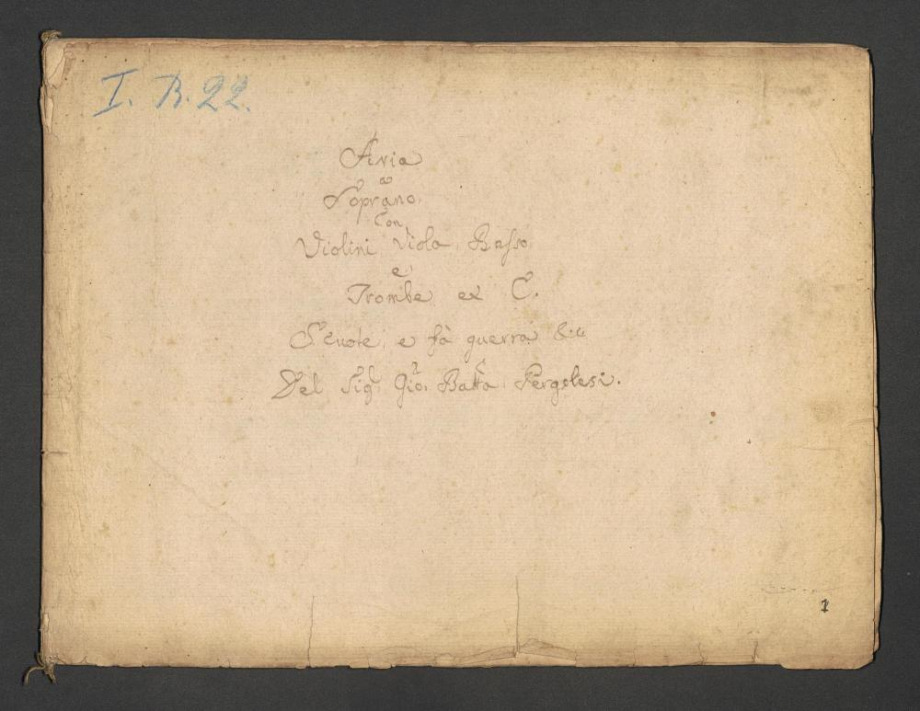 I. R. 22.
Aria
a
Soprano.
Con
Violini Viola Basso
e
Trombe ex C.
Scuote, e fà guerra &c
Del Sigr. Gio. Batta Pergolesi.
1